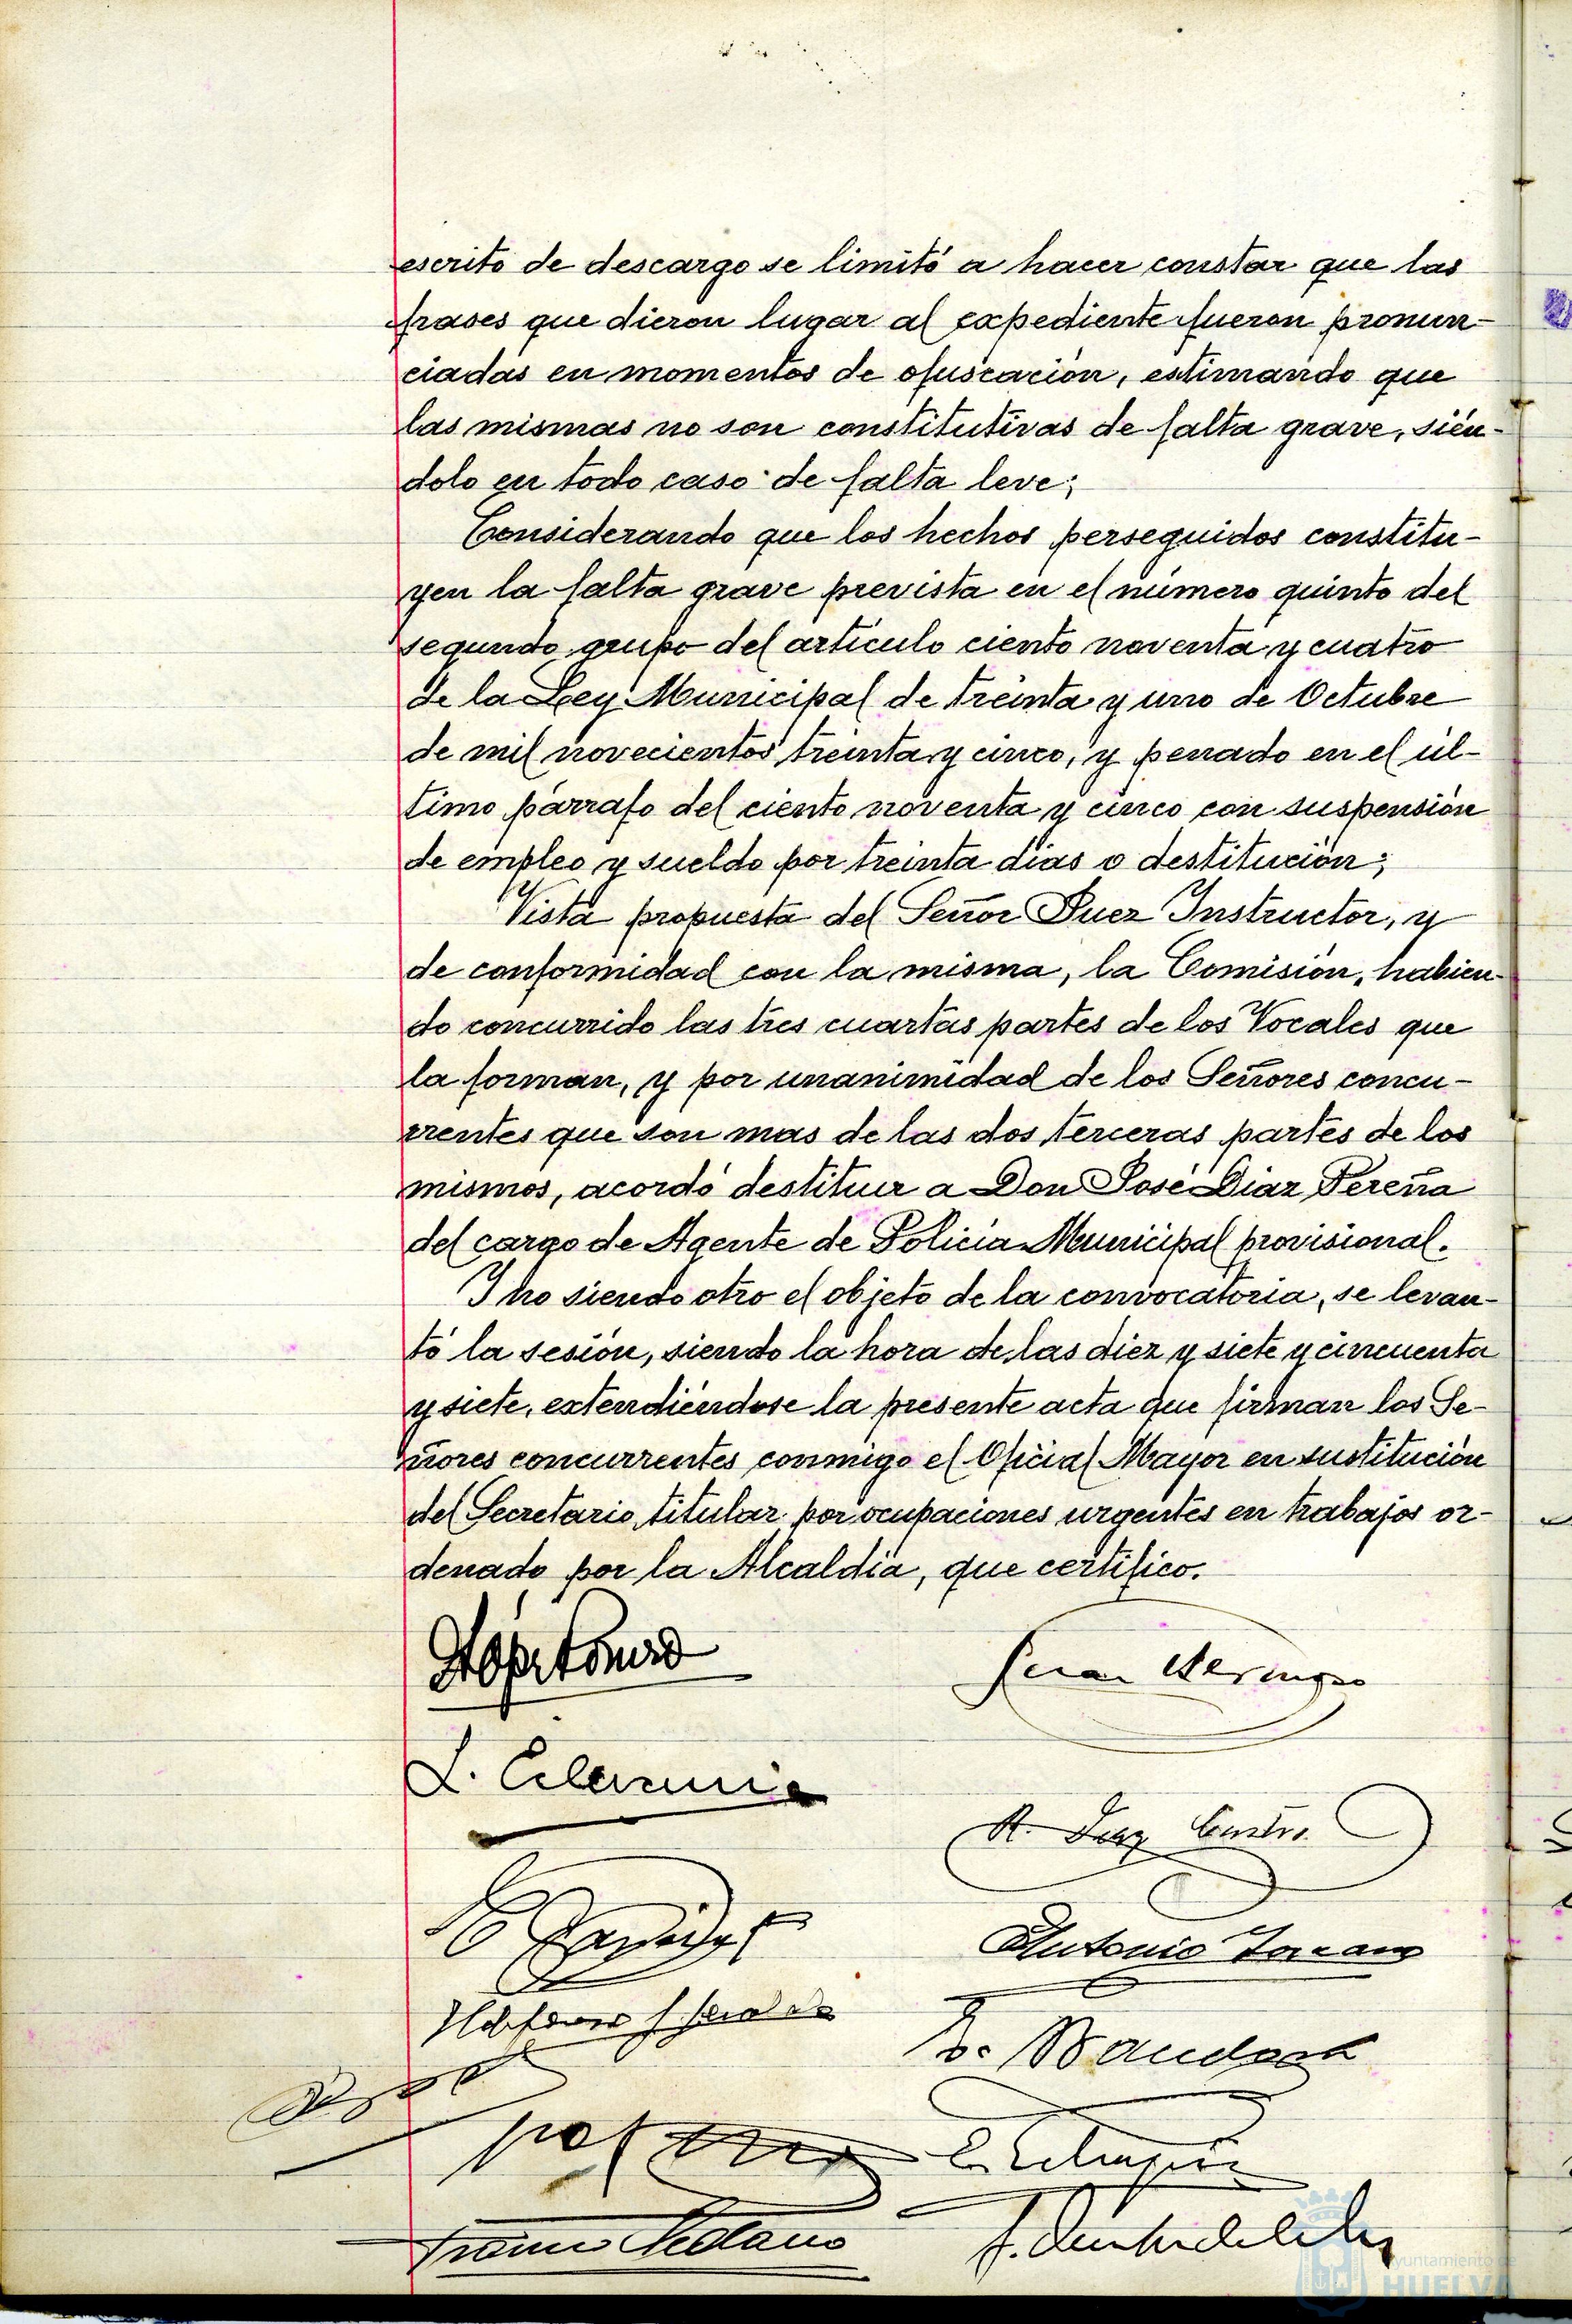 escrito de descargo se limitó a hacer constar que las
frases que dieron lugar al expediente fueron pronun-
ciadas en momentos de ofuscación, estimando que
las mismas no son constitutivas de falta grave, sién-
dolo en todo caso de falta leve;
Considerando que los hechos perseguidos constitu-
yen la falta grave prevista en el número quinto del
segundo grupo del artículo ciento noventa y cuatro
de la Ley Municipal de treinta y uno de Octubre
de mil novecientos treinta y cinco, y penado en el úl-
timo párrafo del ciento noventa y cinco con suspensión
de empleo y sueldo por treinta días o destitución;
Vista propuesta del Señor Juez Instructor, y
de conformidad con la misma, la Comisión, habien-
do concurrido las tres cuartas partes de los Vocales que
la forman, y por unanimidad de los Señores concu-
rrentes que son mas de las dos terceras partes de los
mismos, acordó destituir a Don José Díaz Pereña
del cargo de Agente de Policía Municipal provisional.
Y no siendo otro el objeto de la convocatoria, se levan-
tó la sesión, siendo la hora de las diez y siete y cincuenta
y siete, extendiéndose la presente acta que firman los Se-
ñores concurrentes conmigo el Oficial Mayor en sustitución
del Secretario titular por ocupaciones urgentes en trabajos or-
denado por la Alcaldía, que certifico.
Juan
L.
R. Díaz
Antonio
Ayuntamiento de
HUELVA